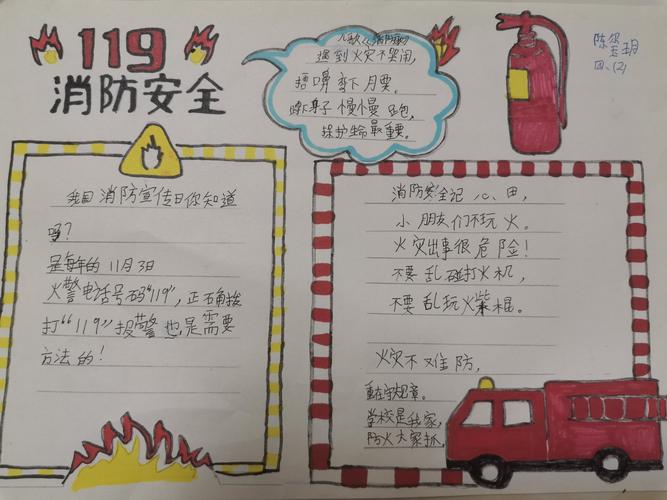 119
消防安全
儿歌《消防歌》
遇到火灾不哭闹,
捂嘴弯下腰。
蹲身子慢慢跑,
保护生命最重要。
四、(2)
我国消防宣传日你知道
吗?
是每年的11月3日
火警电话号码“119”,正确拨
打“119”报警也是需要
方法的!
消防安全记心田,
小朋友们不玩火。
火灾出事很危险!
不要乱碰打火机,
不要乱玩火柴棍。
火灾不难防,
重在守规章。
学校是我家,
防火大家抓,